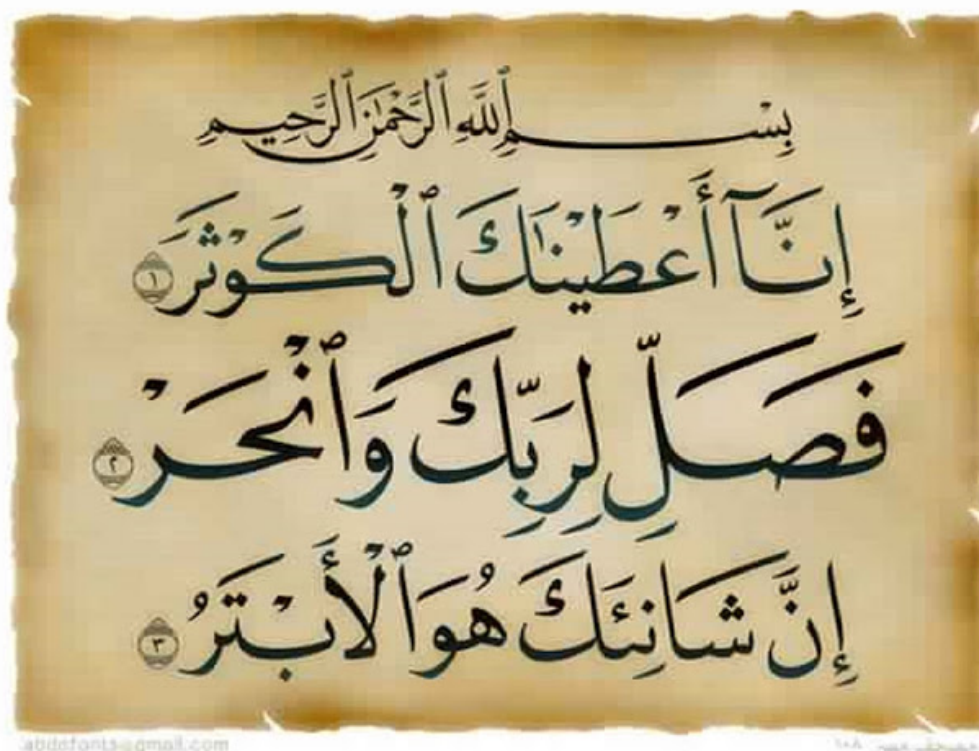 بِسْمِ ٱللَّهِ ٱلرَّحْمَٰنِ ٱلرَّحِيمِ
إِنَّآ أَعْطَيْنَٰكَ ٱلْكَوْثَرَ ١
فَصَلِّ لِرَبِّكَ وَٱنْحَرْ ٢
إِنَّ شَانِئَكَ هُوَ ٱلْأَبْتَرُ ٣
abdofonts@gmail.com